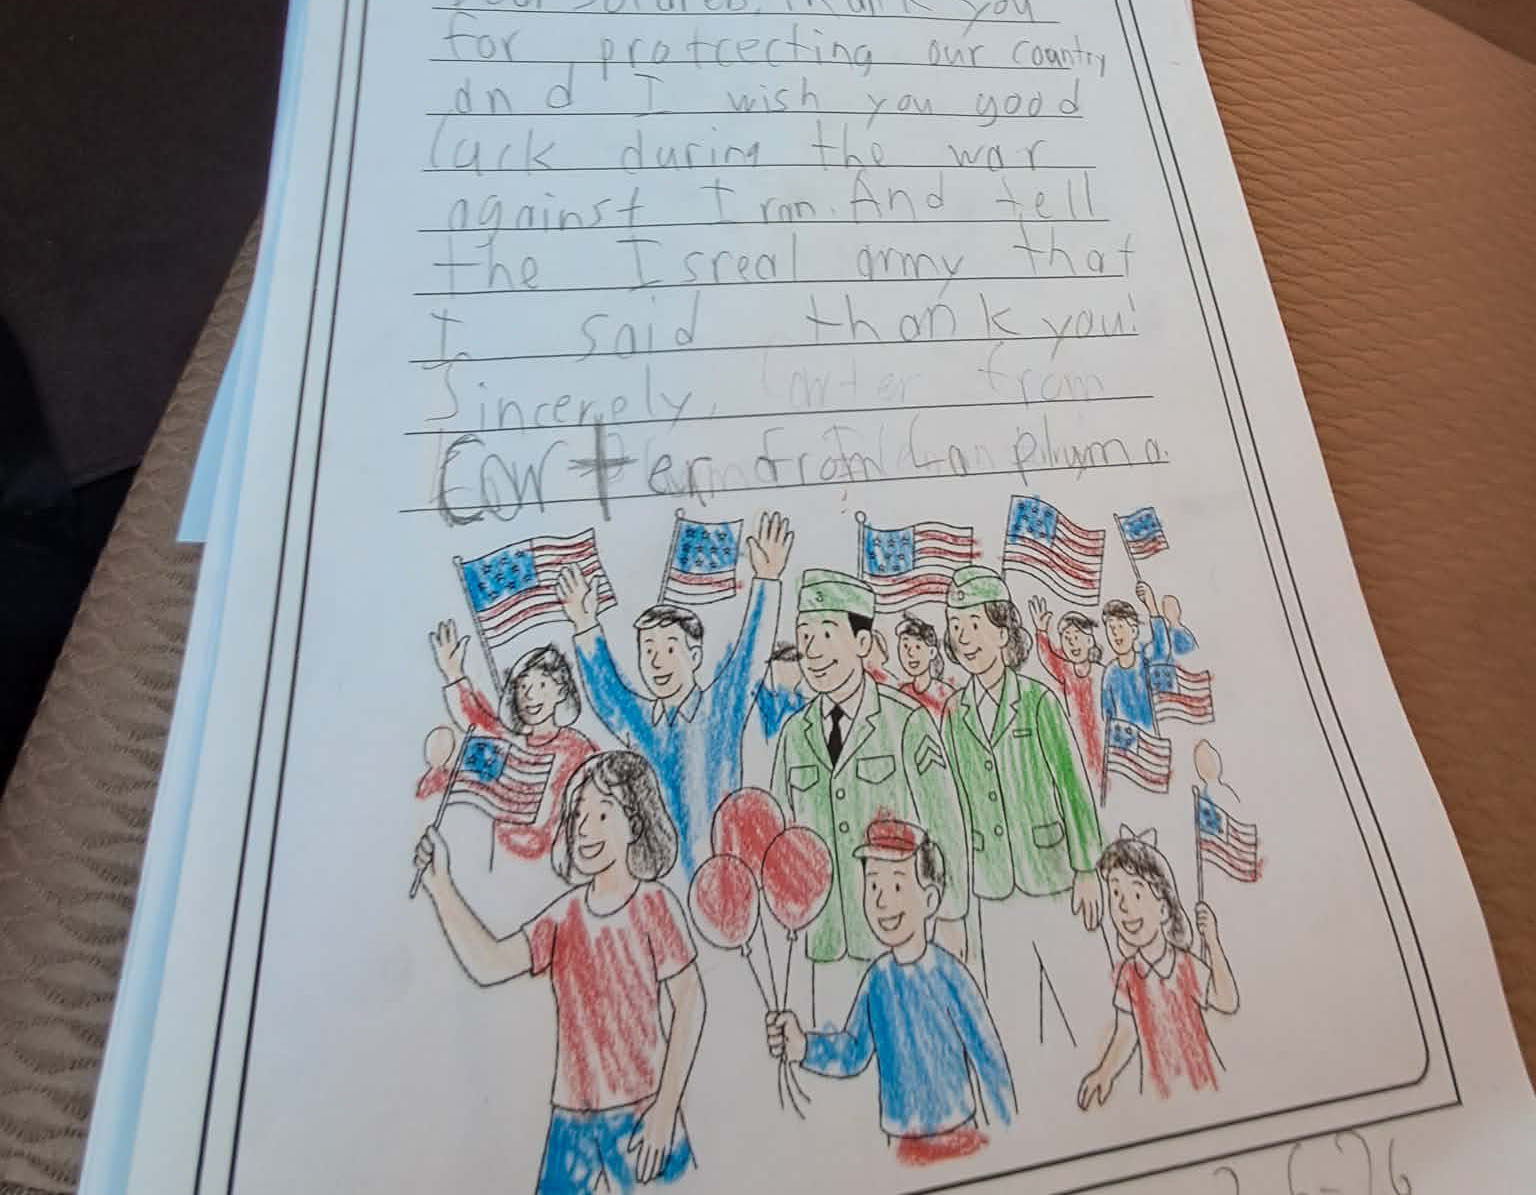 thank you
for protcecting our country
and I wish you good
lack during the war
against Iran. And tell
the Isreal army that
I said thank you!
Sincerely, Carter from
Carter from
3